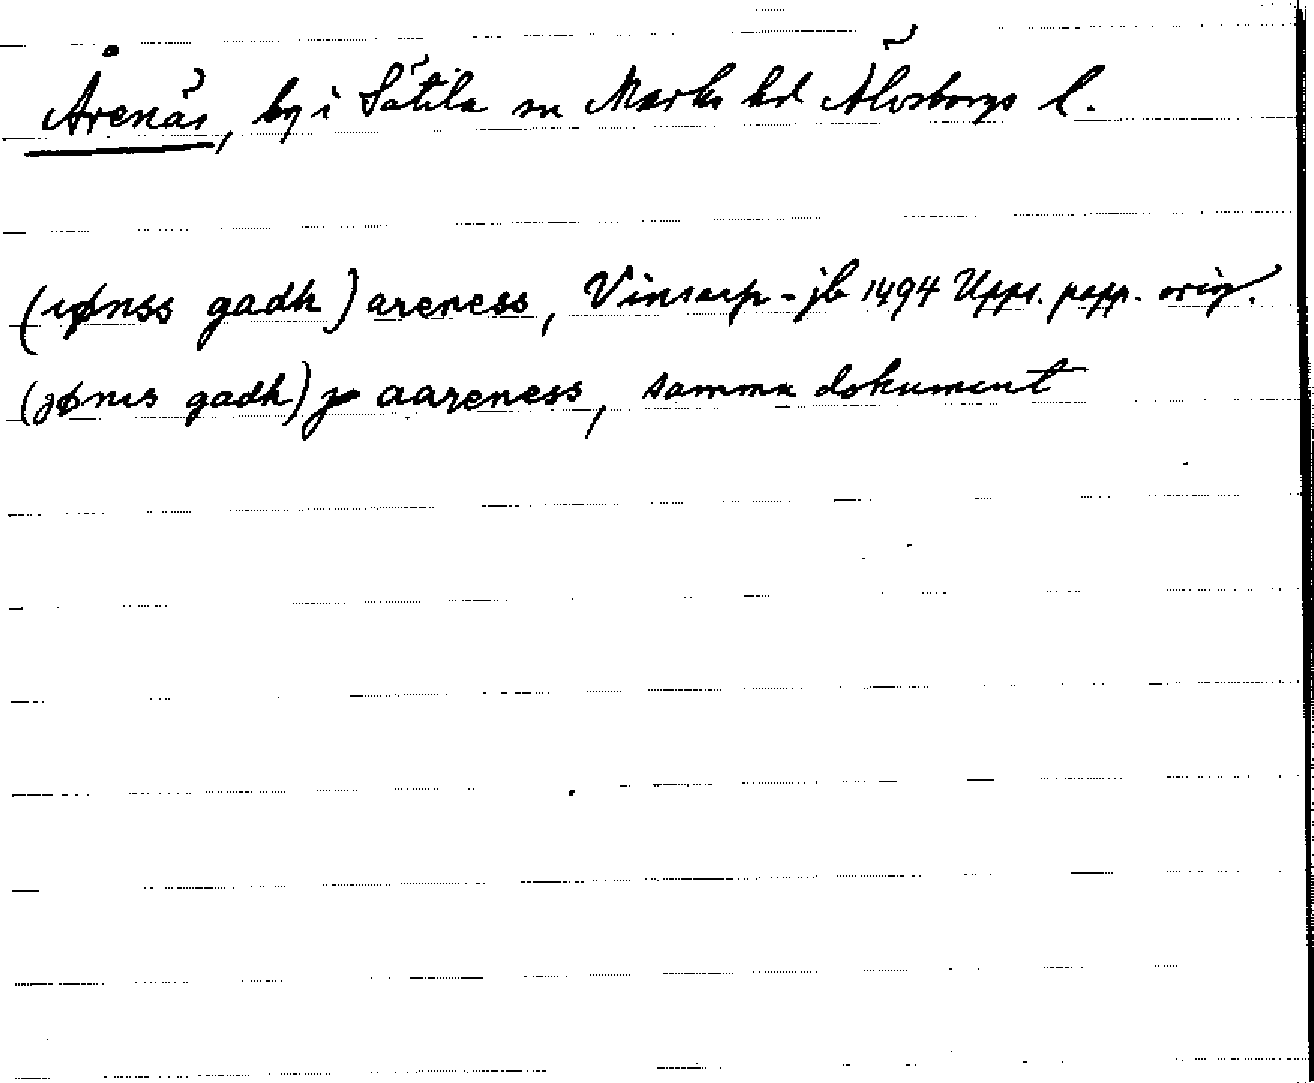 Årenäs, by i Sätila sn Marks hd Älvsborgs l.
(ıønss gadh) areness, Vinsarp-jb 1494 Upps. papp. orig.
(jønıs gadh) jo aareness, samma dokument